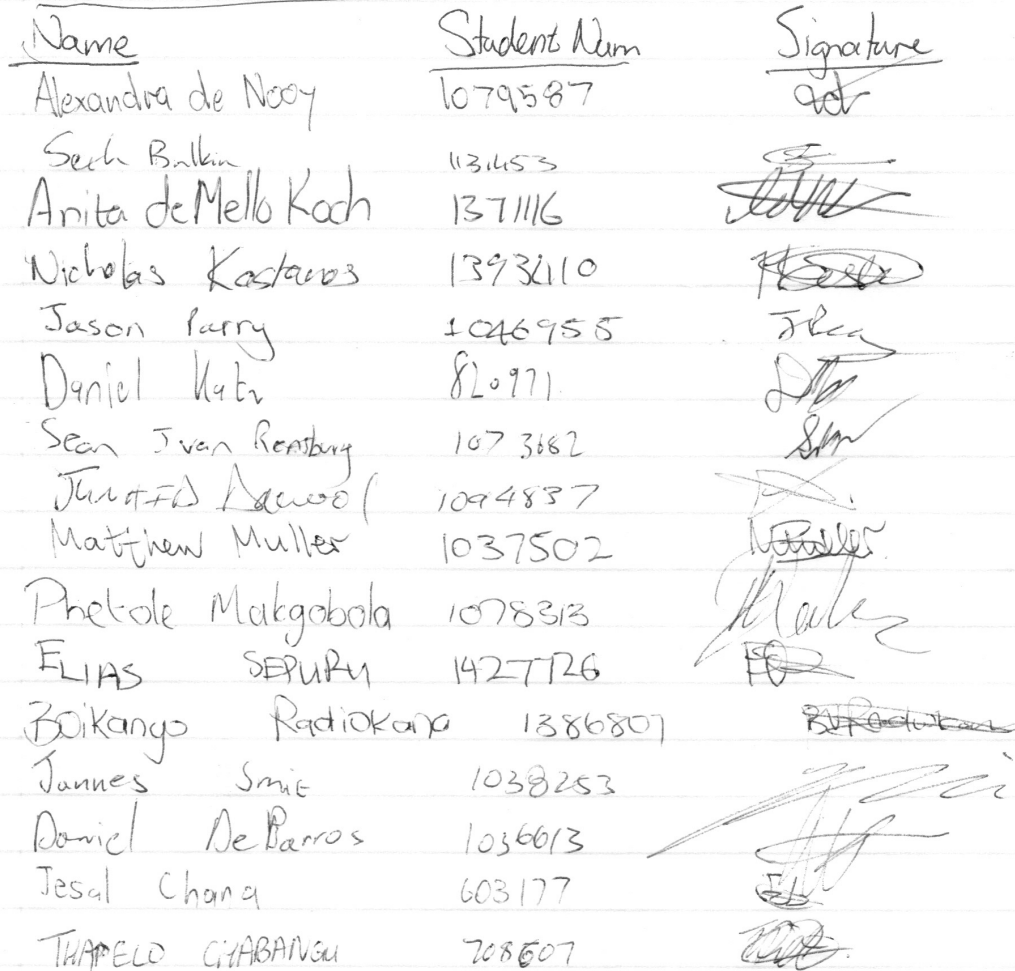 Name Student Num Signature
Alexandra de Nooy 1079587
1131453
Anita de Mello Koch 1371116
Nicholas Kastanos 1393410
Jason Parry 1046955 J Parry
Daniel Katz 820971
Sean J van Rensburg 1073682
1094837
Matthew Muller 1037502 M Muller
Phetole Makgobola 1078313
ELIAS SEPURU 1427726
Boikanyo Radiokana 1386807
Jannes Smit 1038253
Daniel De Barros 1036613
Jesal Chana 603177
THAPELO 708507